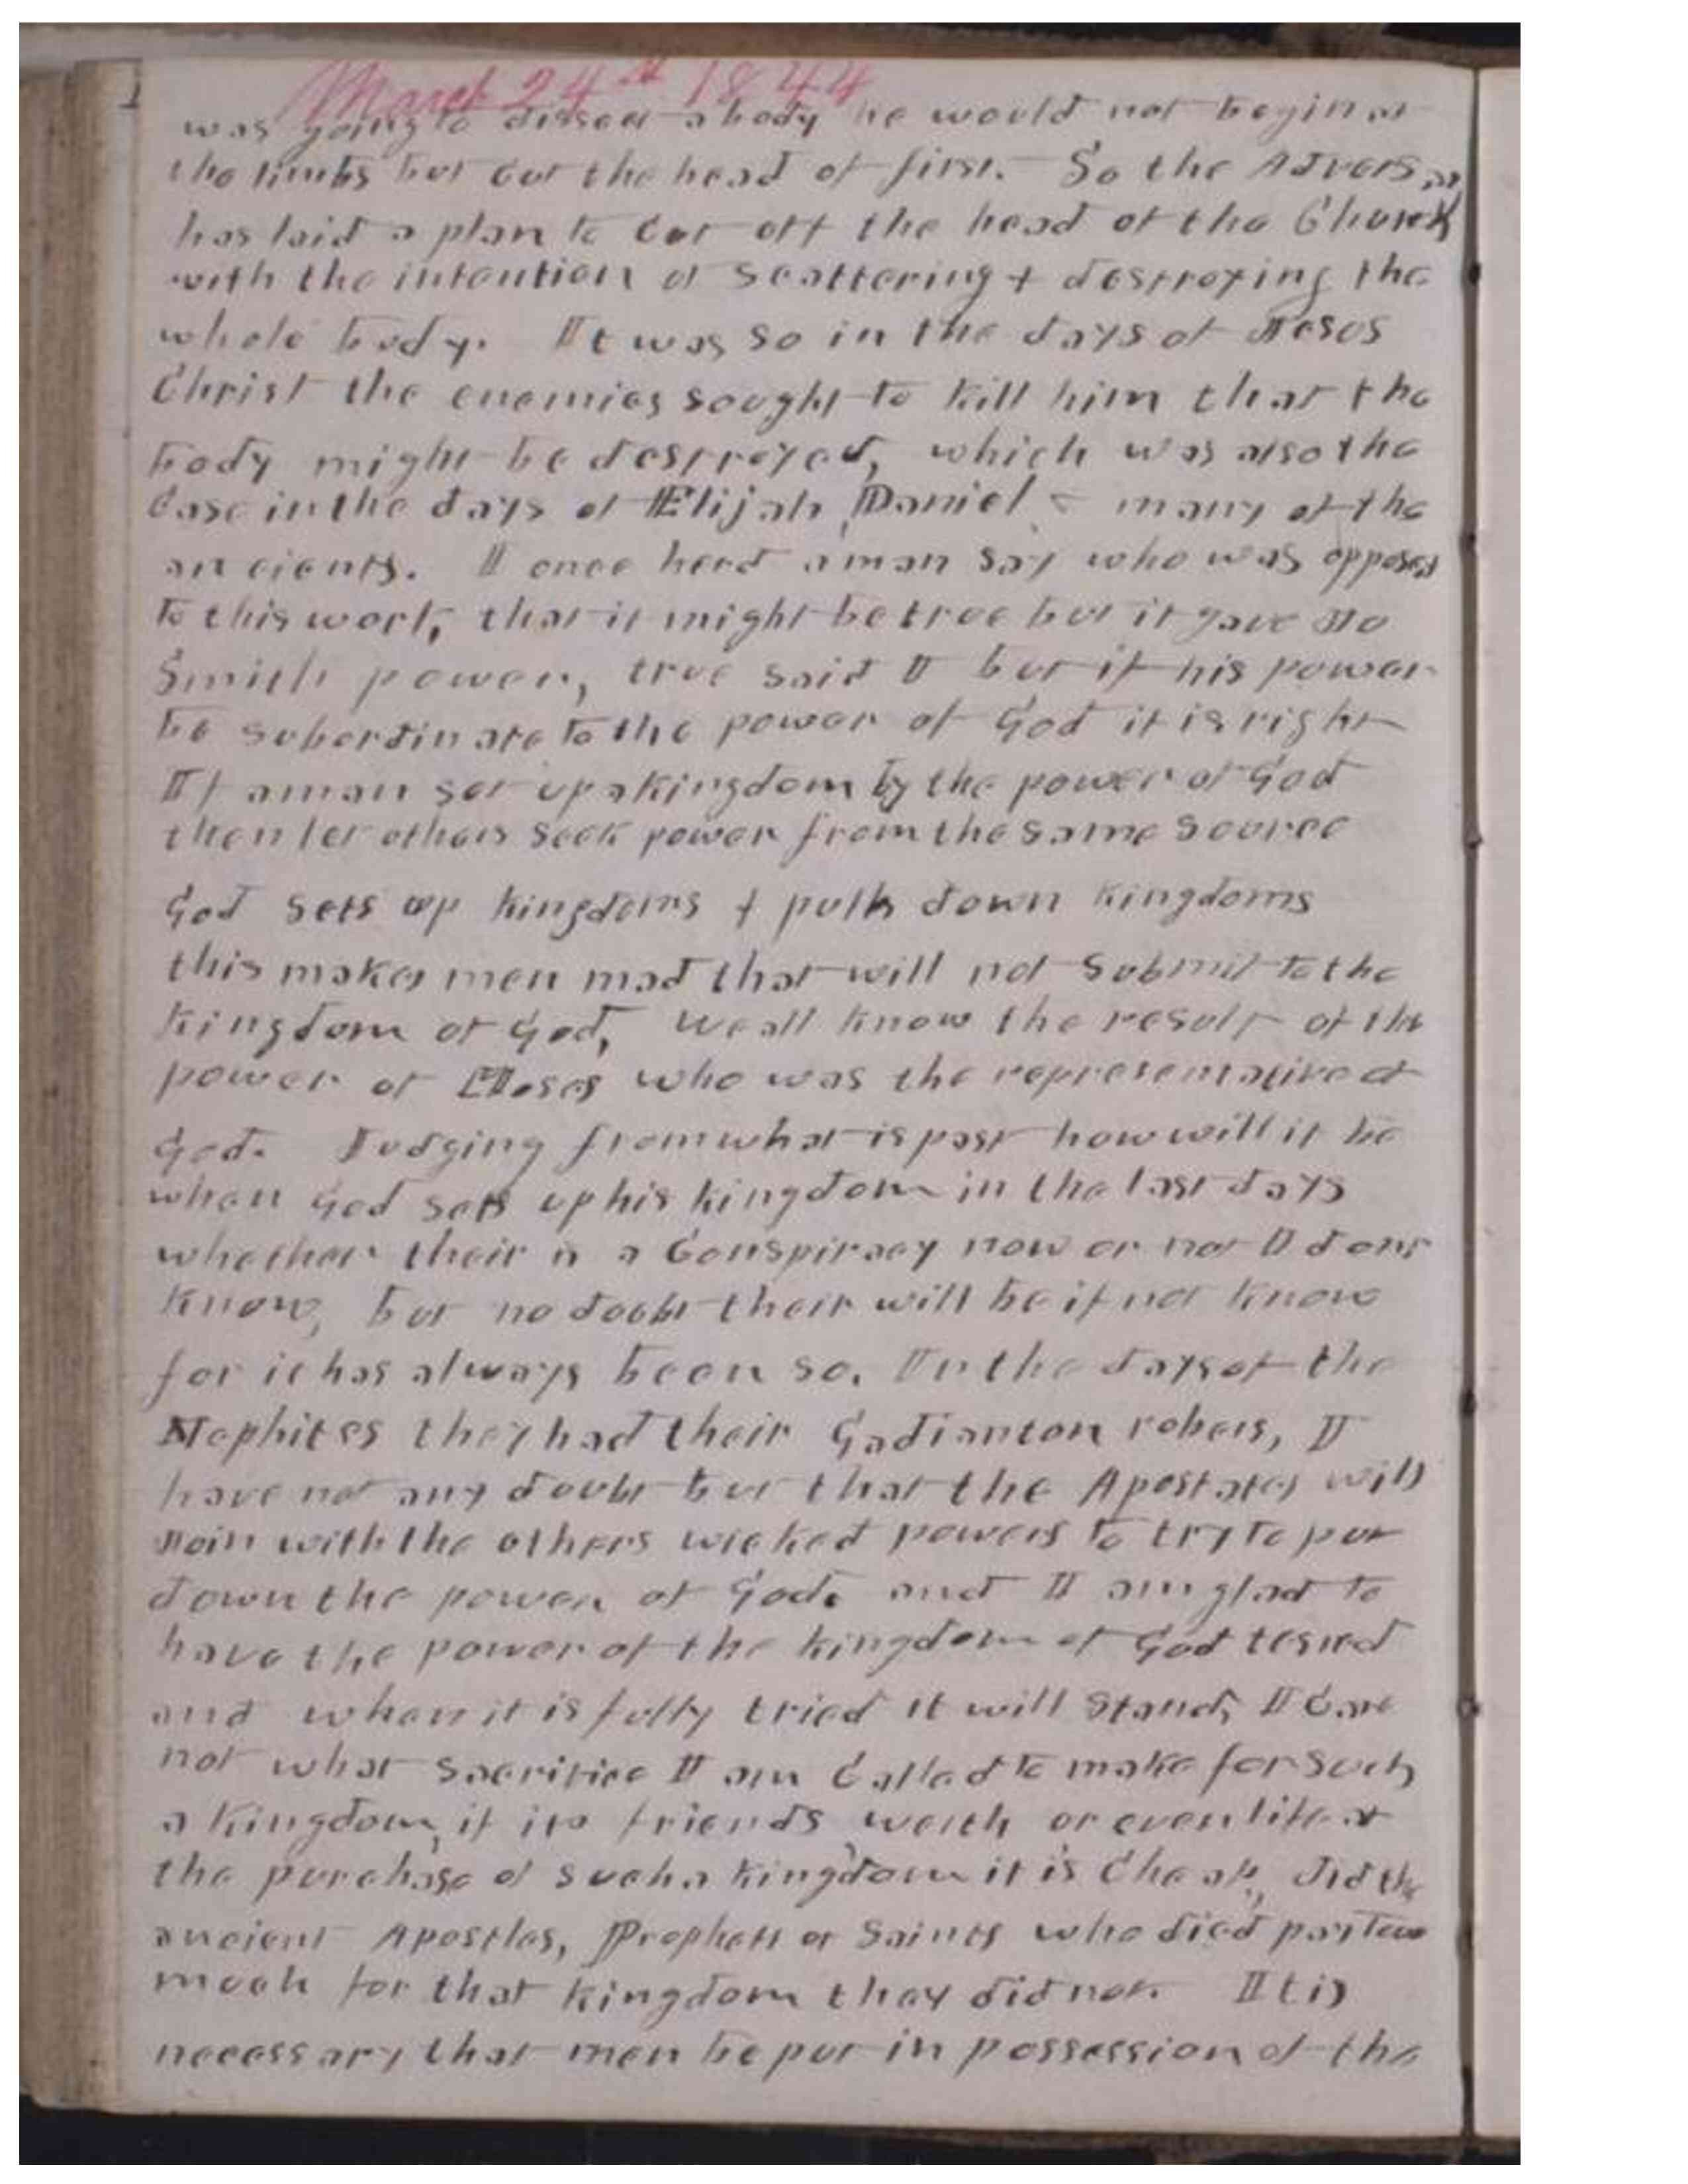 March 24th 1844
was going to dissect a body he would not begin at
the limbs but cut the head of first. So the Advers
has laid a plan to cut off the head of the Church
with the intention of scattering & destroying the
whole body. It was so in the days of Jesus
Christ the enemies sought to kill him that the
body might be destroyed, which was also the
case in the days of Elijah, Daniel & many of the
ancients. I once herd a man say who was opposed
to this work, that it might be true but it gave Jo
Smith power, true said I but if his power
be subordinate to the power of God it is right
If a man set up a kingdom by the power of God
then let others seek power from the same source
God sets up kingdoms & pulls down kingdoms
this makes men mad that will not submit to the
kingdom of God, we all know the result of the
power of Moses who was the representative of
God. Judging from what is past how will it be
when God sets up his kingdom in the last days
whether their is a Conspiracy now or not I dont
know, but no doubt their will be if not know
for it has always been so. In the days of the
Nephites they had their Gadianton robers, I
have not any doubt but that the Apostates will
join with the others wicked powers to try to put
down the power of God. and I am glad to
have the power of the kingdom of God tested
and when it is fully tried it will stand, I care
not what sacrifice I am called to make for such
a kingdom, if its friends, weath or even life at
the purchase of such a kingdom it is cheap, did the
ancient Apostles, Prophets or Saints who died pay two
much for that kingdom they did not. It is
necessary that men be put in possession of the